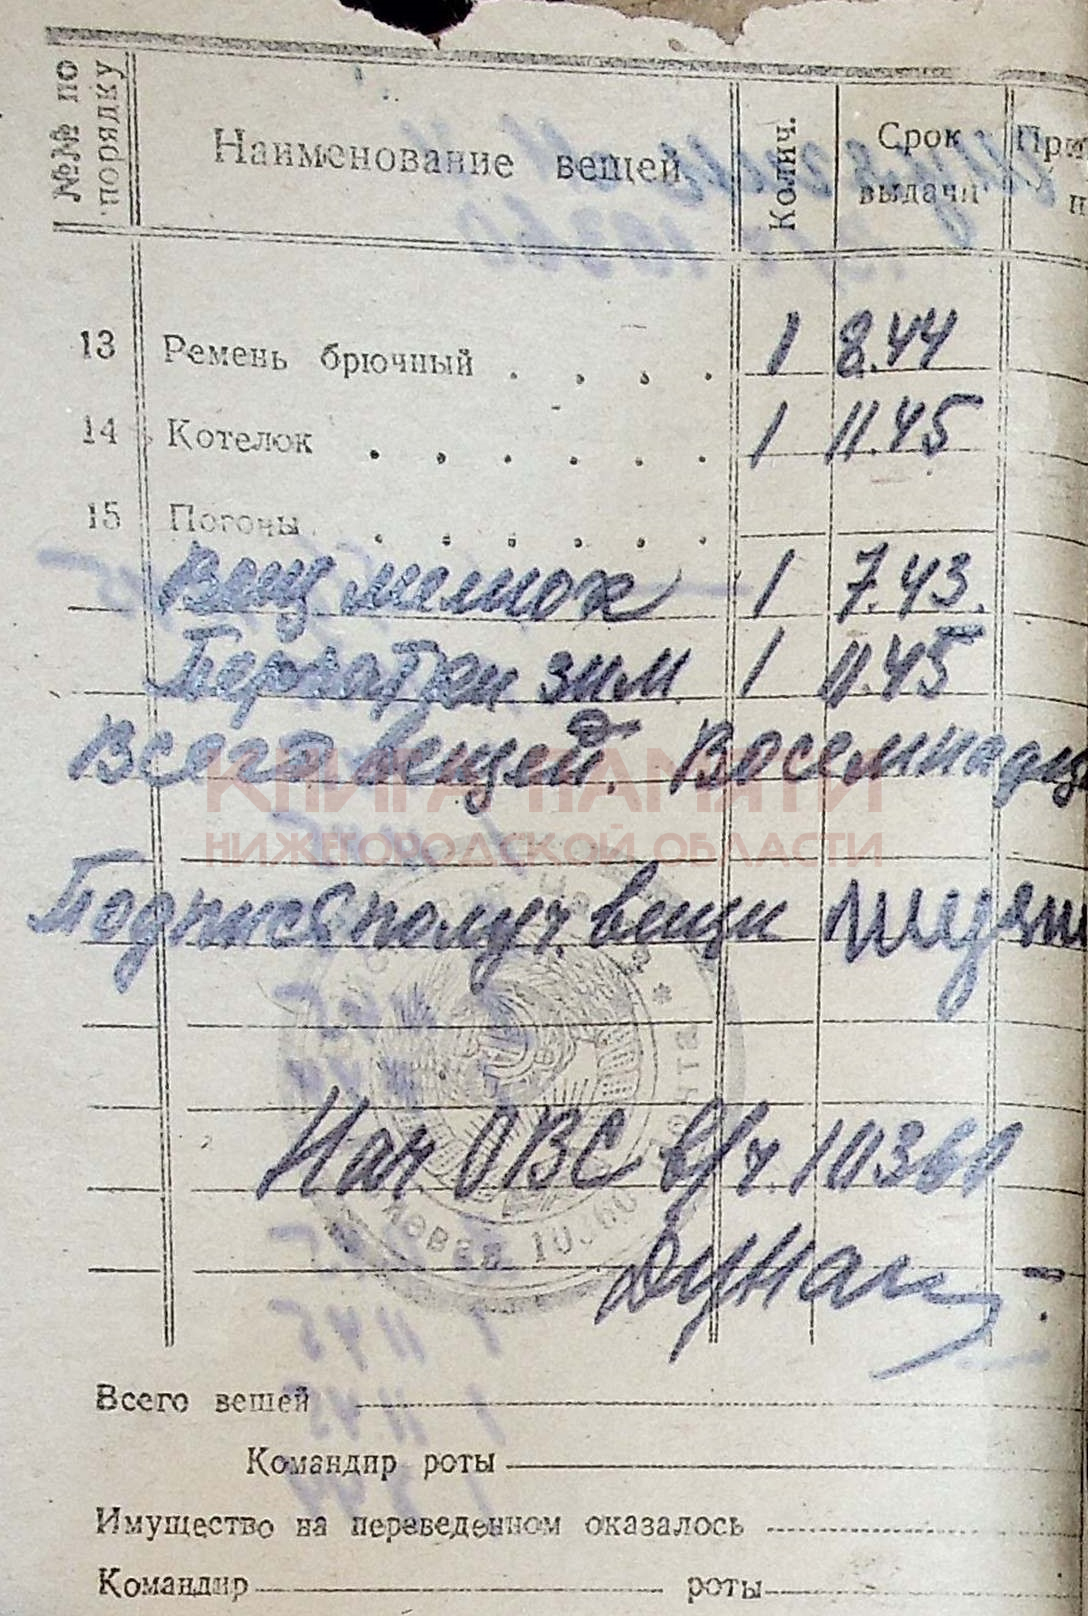 №№ по порядку
Наименование вещей
Колич.
Срок выдачи
13 Ремень брючный . . . . 1 8.44
14 Котелок . . . . . . 1 11.45
15 Погоны . . . . . .
Вещ мешок 1 7.43.
Перчатки зим. 1 11.45
Всего вещей. Восемнадц
КНИГА ПАМЯТИ
НИЖЕГОРОДСКОЙ ОБЛАСТИ
Подпись получ. вещи
Нач. ОВС в/ч. 10360
почта
10360
Всего вещей
Командир роты
Имущество на переведенном оказалось
Командир роты